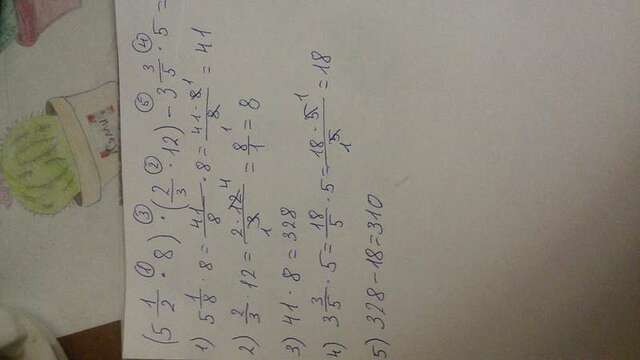 (5 1/2 ① · 8) ③ · (2/3 ② · 12) ⑤ - 3 3/5 ④ · 5 =
1) 5 1/8 · 8 = 41/8 · 8 = 41 · 8 1/8 = 41
2) 2/3 · 12 = 2 · 12 4/1 3 = 8/1 1 = 8
3) 41 · 8 = 328
4) 3 3/5 · 5 = 18/5 · 5 = 18 · 5 1/1 5 = 18
5) 328 - 18 = 310